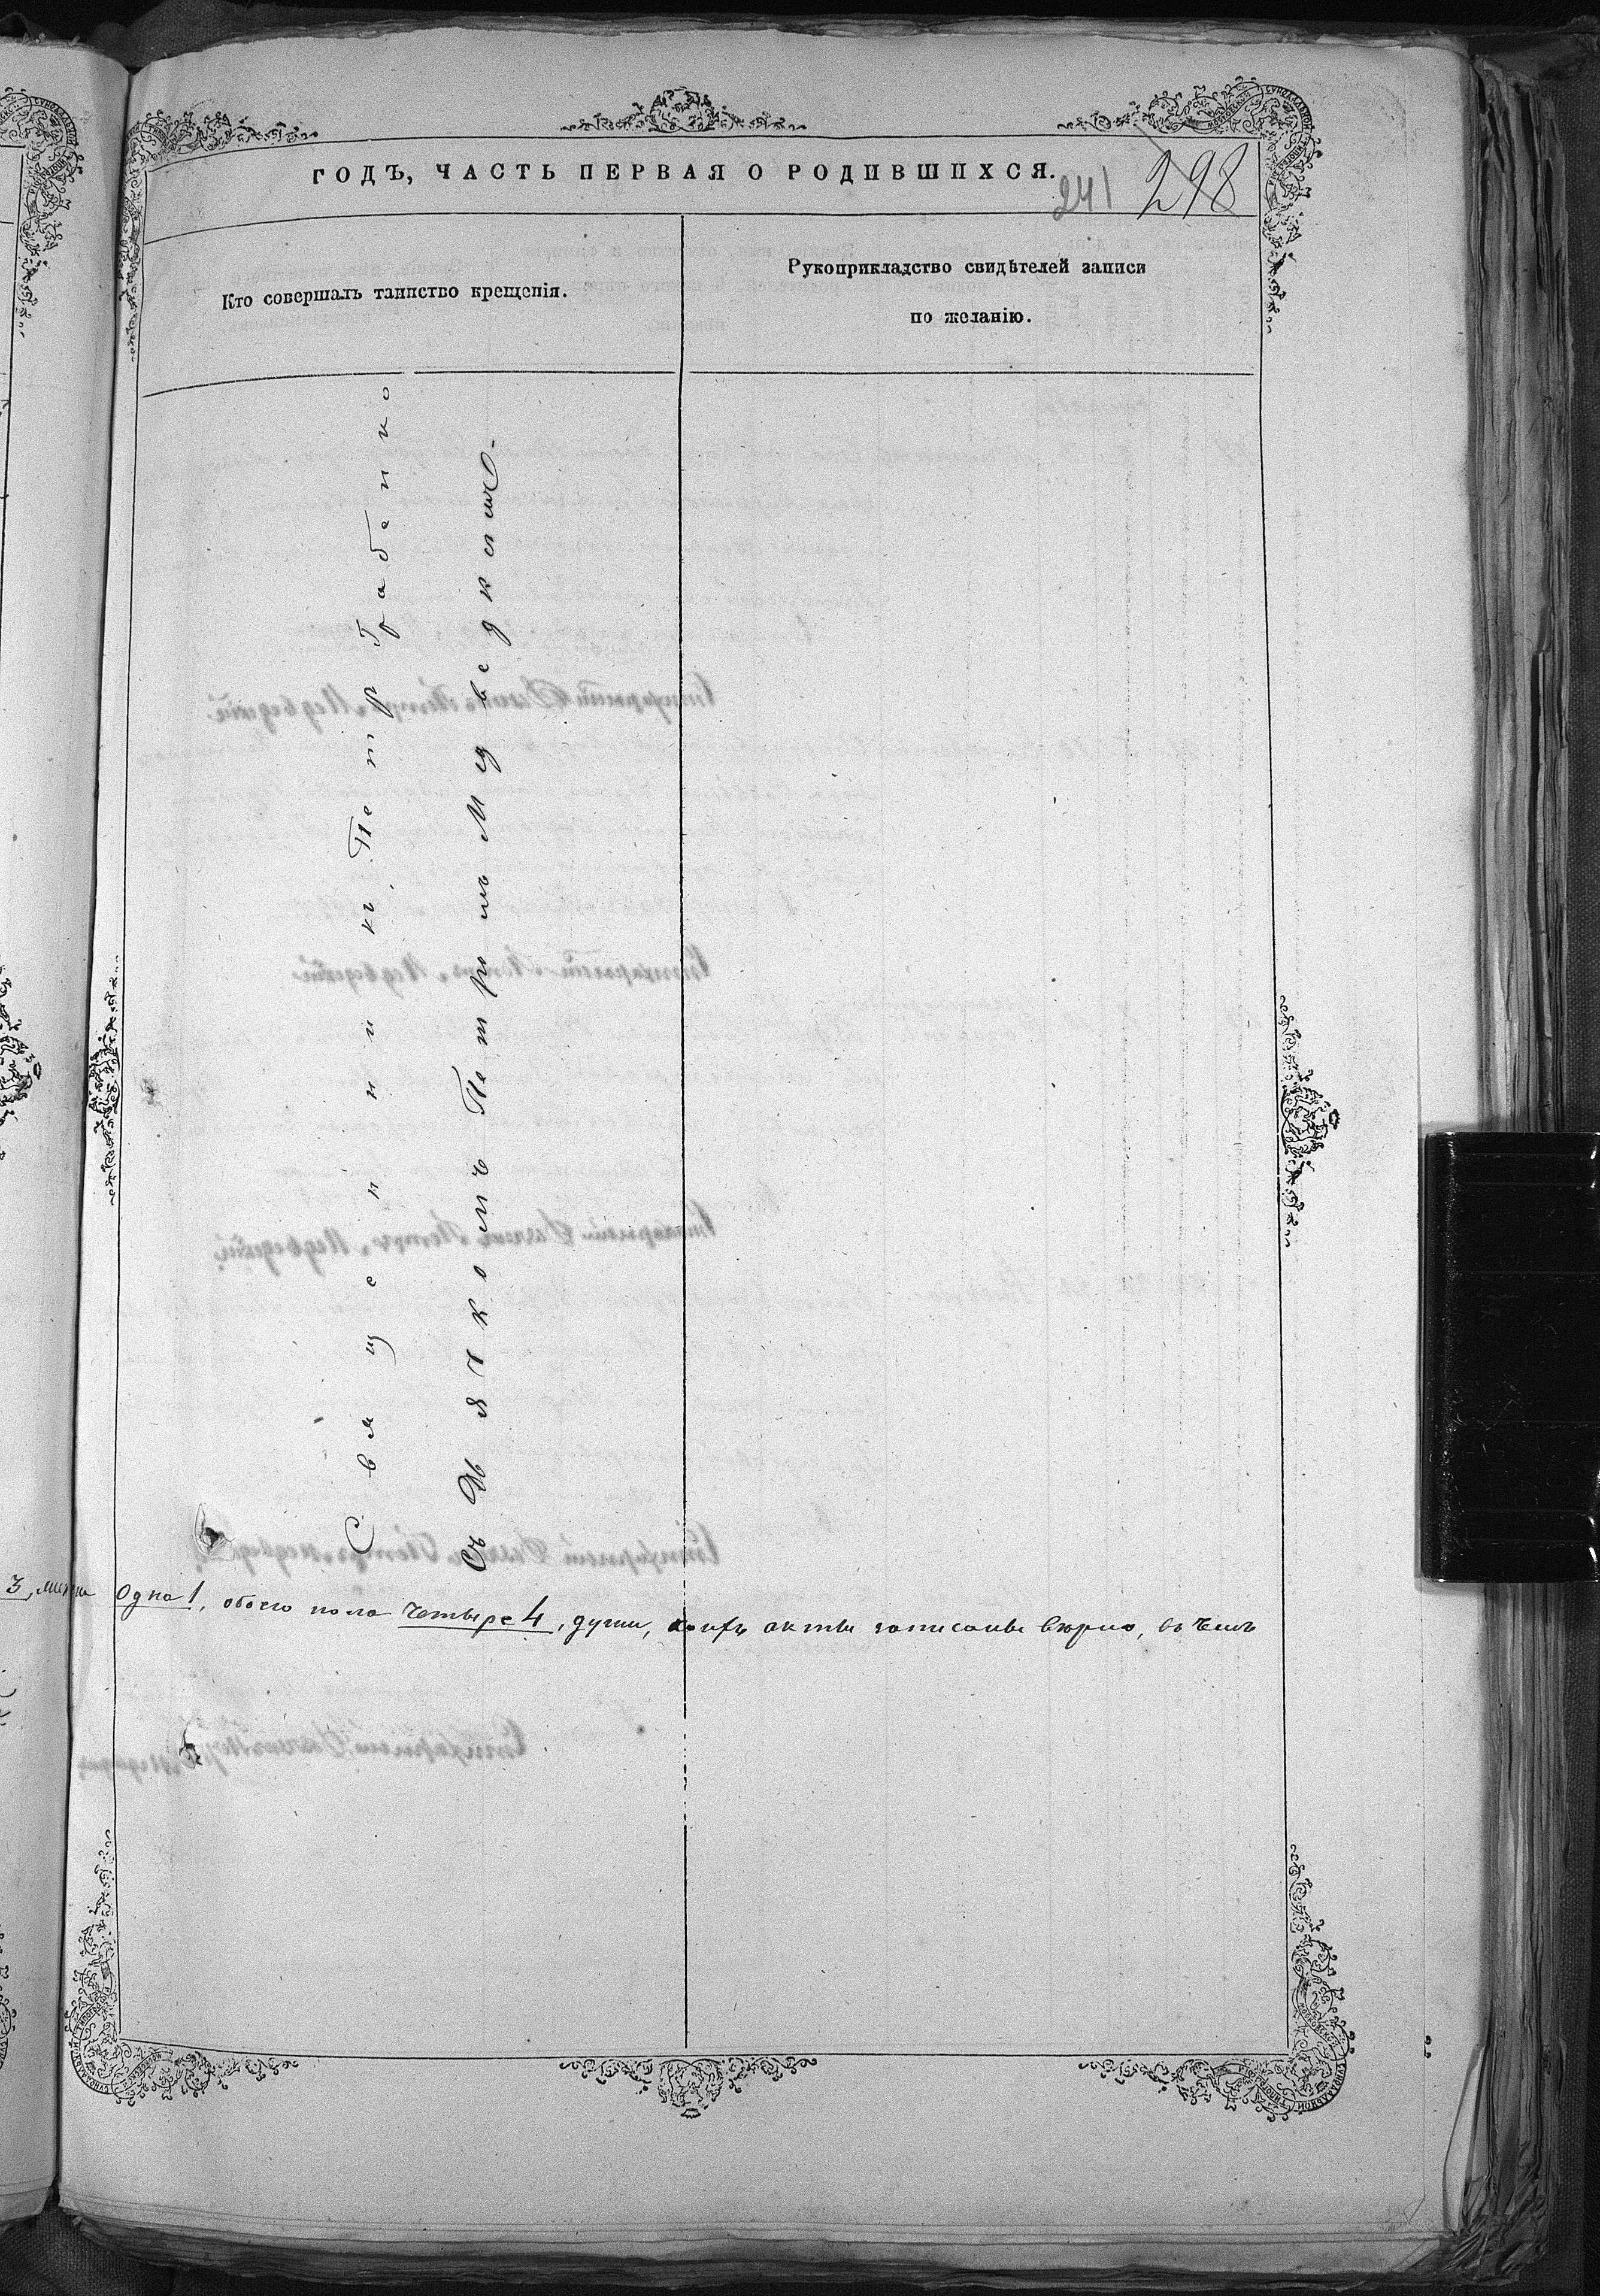 ГОДЪ, ЧАСТЬ ПЕРВАЯ О РОДИВШИХСЯ.
241 298
Кто совершалъ таинство крещенія.
Рукоприкладство свидѣтелей записи
по желанію.
Священникъ Петръ Грабенко
съ Дьячкомъ Петромъ Медведкымъ.
3, одна 1, обоего пола четыре 4, души, коихъ акты записаны вѣрно, въ чемъ